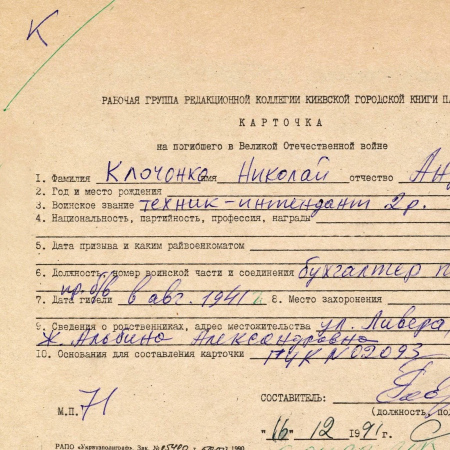 К
РАБОЧАЯ ГРУППА РЕДАКЦИОННОЙ КОЛЛЕГИИ КИЕВСКОЙ ГОРОДСКОЙ КНИГИ П
КАРТОЧКА
на погибшего в Великой Отечественной войне
1. Фамилия Клочонко имя Николай отчество Ан
2. Год и место рождения
3. Воинское звание техник-интендант 2 р.
4. Национальность, партийность, профессия, награды
5. Дата призыва и каким райвоенкоматом
6. Должность, номер воинской части и соединения бухгалтер п
пр. б/в
7. Дата гибели в авг. 1941 8. Место захоронения
9. Сведения о родственниках, адрес местожительства ул. Ливера
ж. Альбина Александровна
10. Основания для составления карточки ГУК N 02093
СОСТАВИТЕЛЬ:
М.П. 71
(должность, под
"16" 12 1991